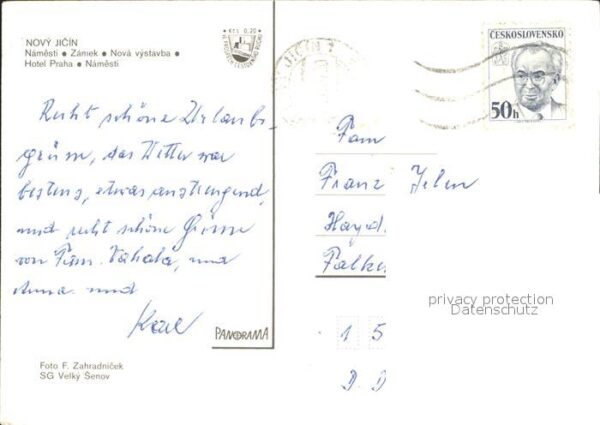 NOVÝ JIČÍN
Náměstí • Zámek • Nová výstavba •
Hotel Praha • Náměstí
Kčs 0,20
ČESKOSLOVENSKO
50h
Recht schöne Urlaubs-
grüße, das Wetter war
bestens, etwas anstrengend,
und recht schöne Grüsse
von Fam. Vahala, und
Anna und
Karl
PANORAMA
Fam
Franz Jelen
Hayd
Falke
1 5
D.D
privacy protection
Datenschutz
Foto F. Zahradníček
SG Velký Šenov